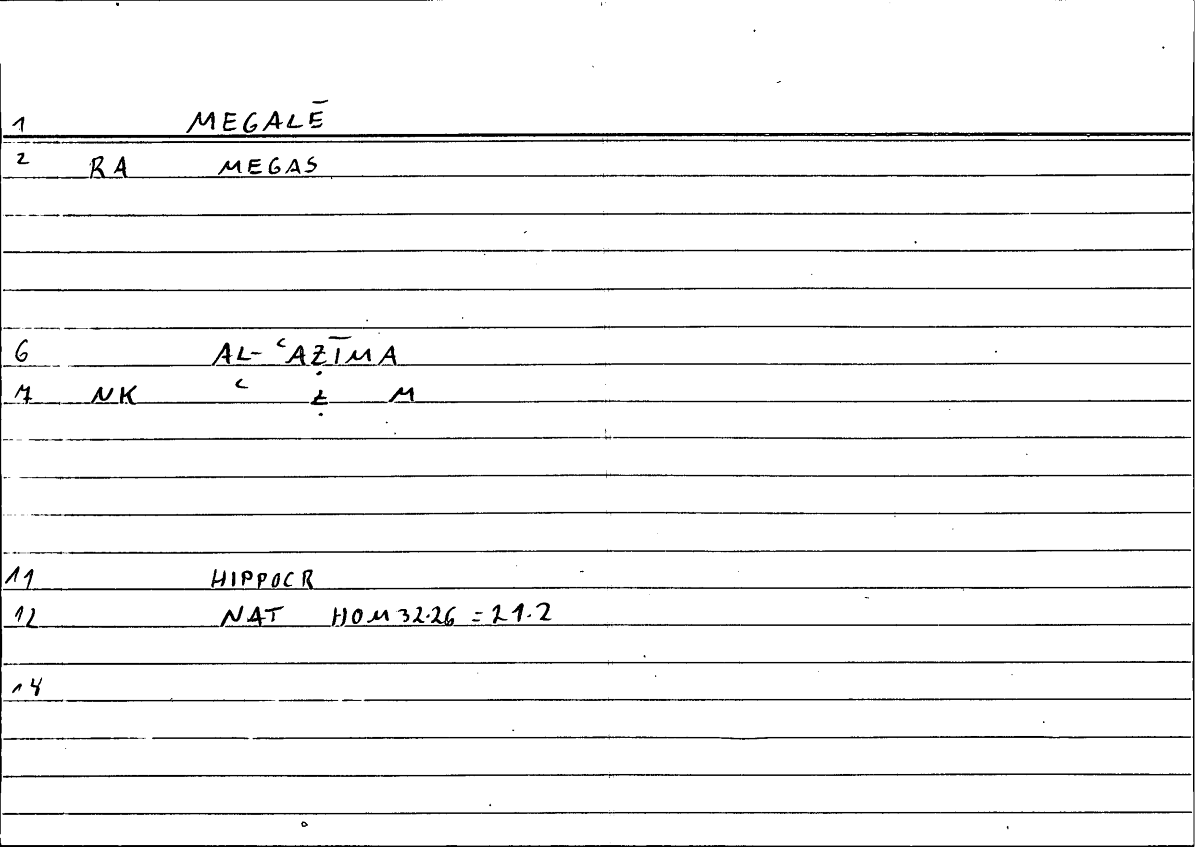 1 MEGALĒ
2 RA MEGAS
6 AL-ʿAẒĪMA
7 NK ʿ Ẓ M
11 HIPPOCR
12 NAT HOM 32.26 = 21.2
14